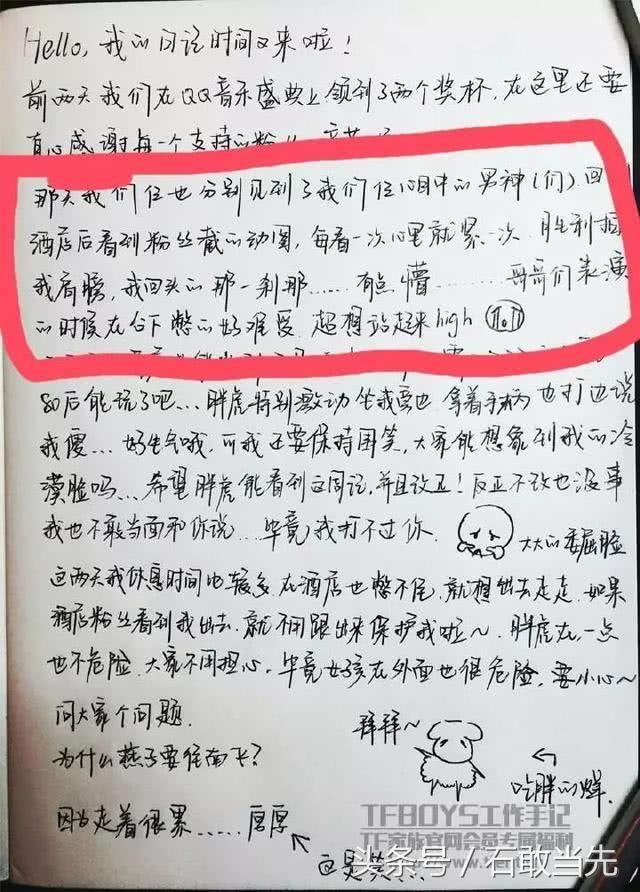 Hello, 我的闲话时间又来啦！
前两天我们在QQ音乐盛典上领到了两个奖杯，在这里还要
衷心感谢每一个支持的粉丝
那天我们仨也分别见到了我们仨心目中的男神（们）回
酒店后看到粉丝截的动图，每看一次心里就紧一次．胜利拍
我肩膀，我回头的那一刹那……有点懵………哥哥们表演
的时候在台下憋的好难受．超想站起来high
80后能说了吧…胖虎特别激动 坐我旁边 拿着手柄 也打边说
我傻…好生气哦，可我还要保持围笑，大家能想象到我的冷
漠脸吗…希望胖虎能看到这闲话，并且改正！反正不改也没事
我也不敢当面和你说…毕竟我打不过你．
大大的委屈脸
这两天我休息时间也较多 在酒店也憋不住，就想出去走走．如果
酒店粉丝看到我出去．就不用跟出来保护我啦～ 胖虎在，一点
也不危险．大家不用担心，毕竟女孩在外面也很危险．要小心～
问大家个问题．
为什么燕子要往南飞？
拜拜～
吃胖的
因为走着很累……厚厚
这是
TFBOYS工作手记
TF家族官网会员专属福利
头条号 / 石敢当先